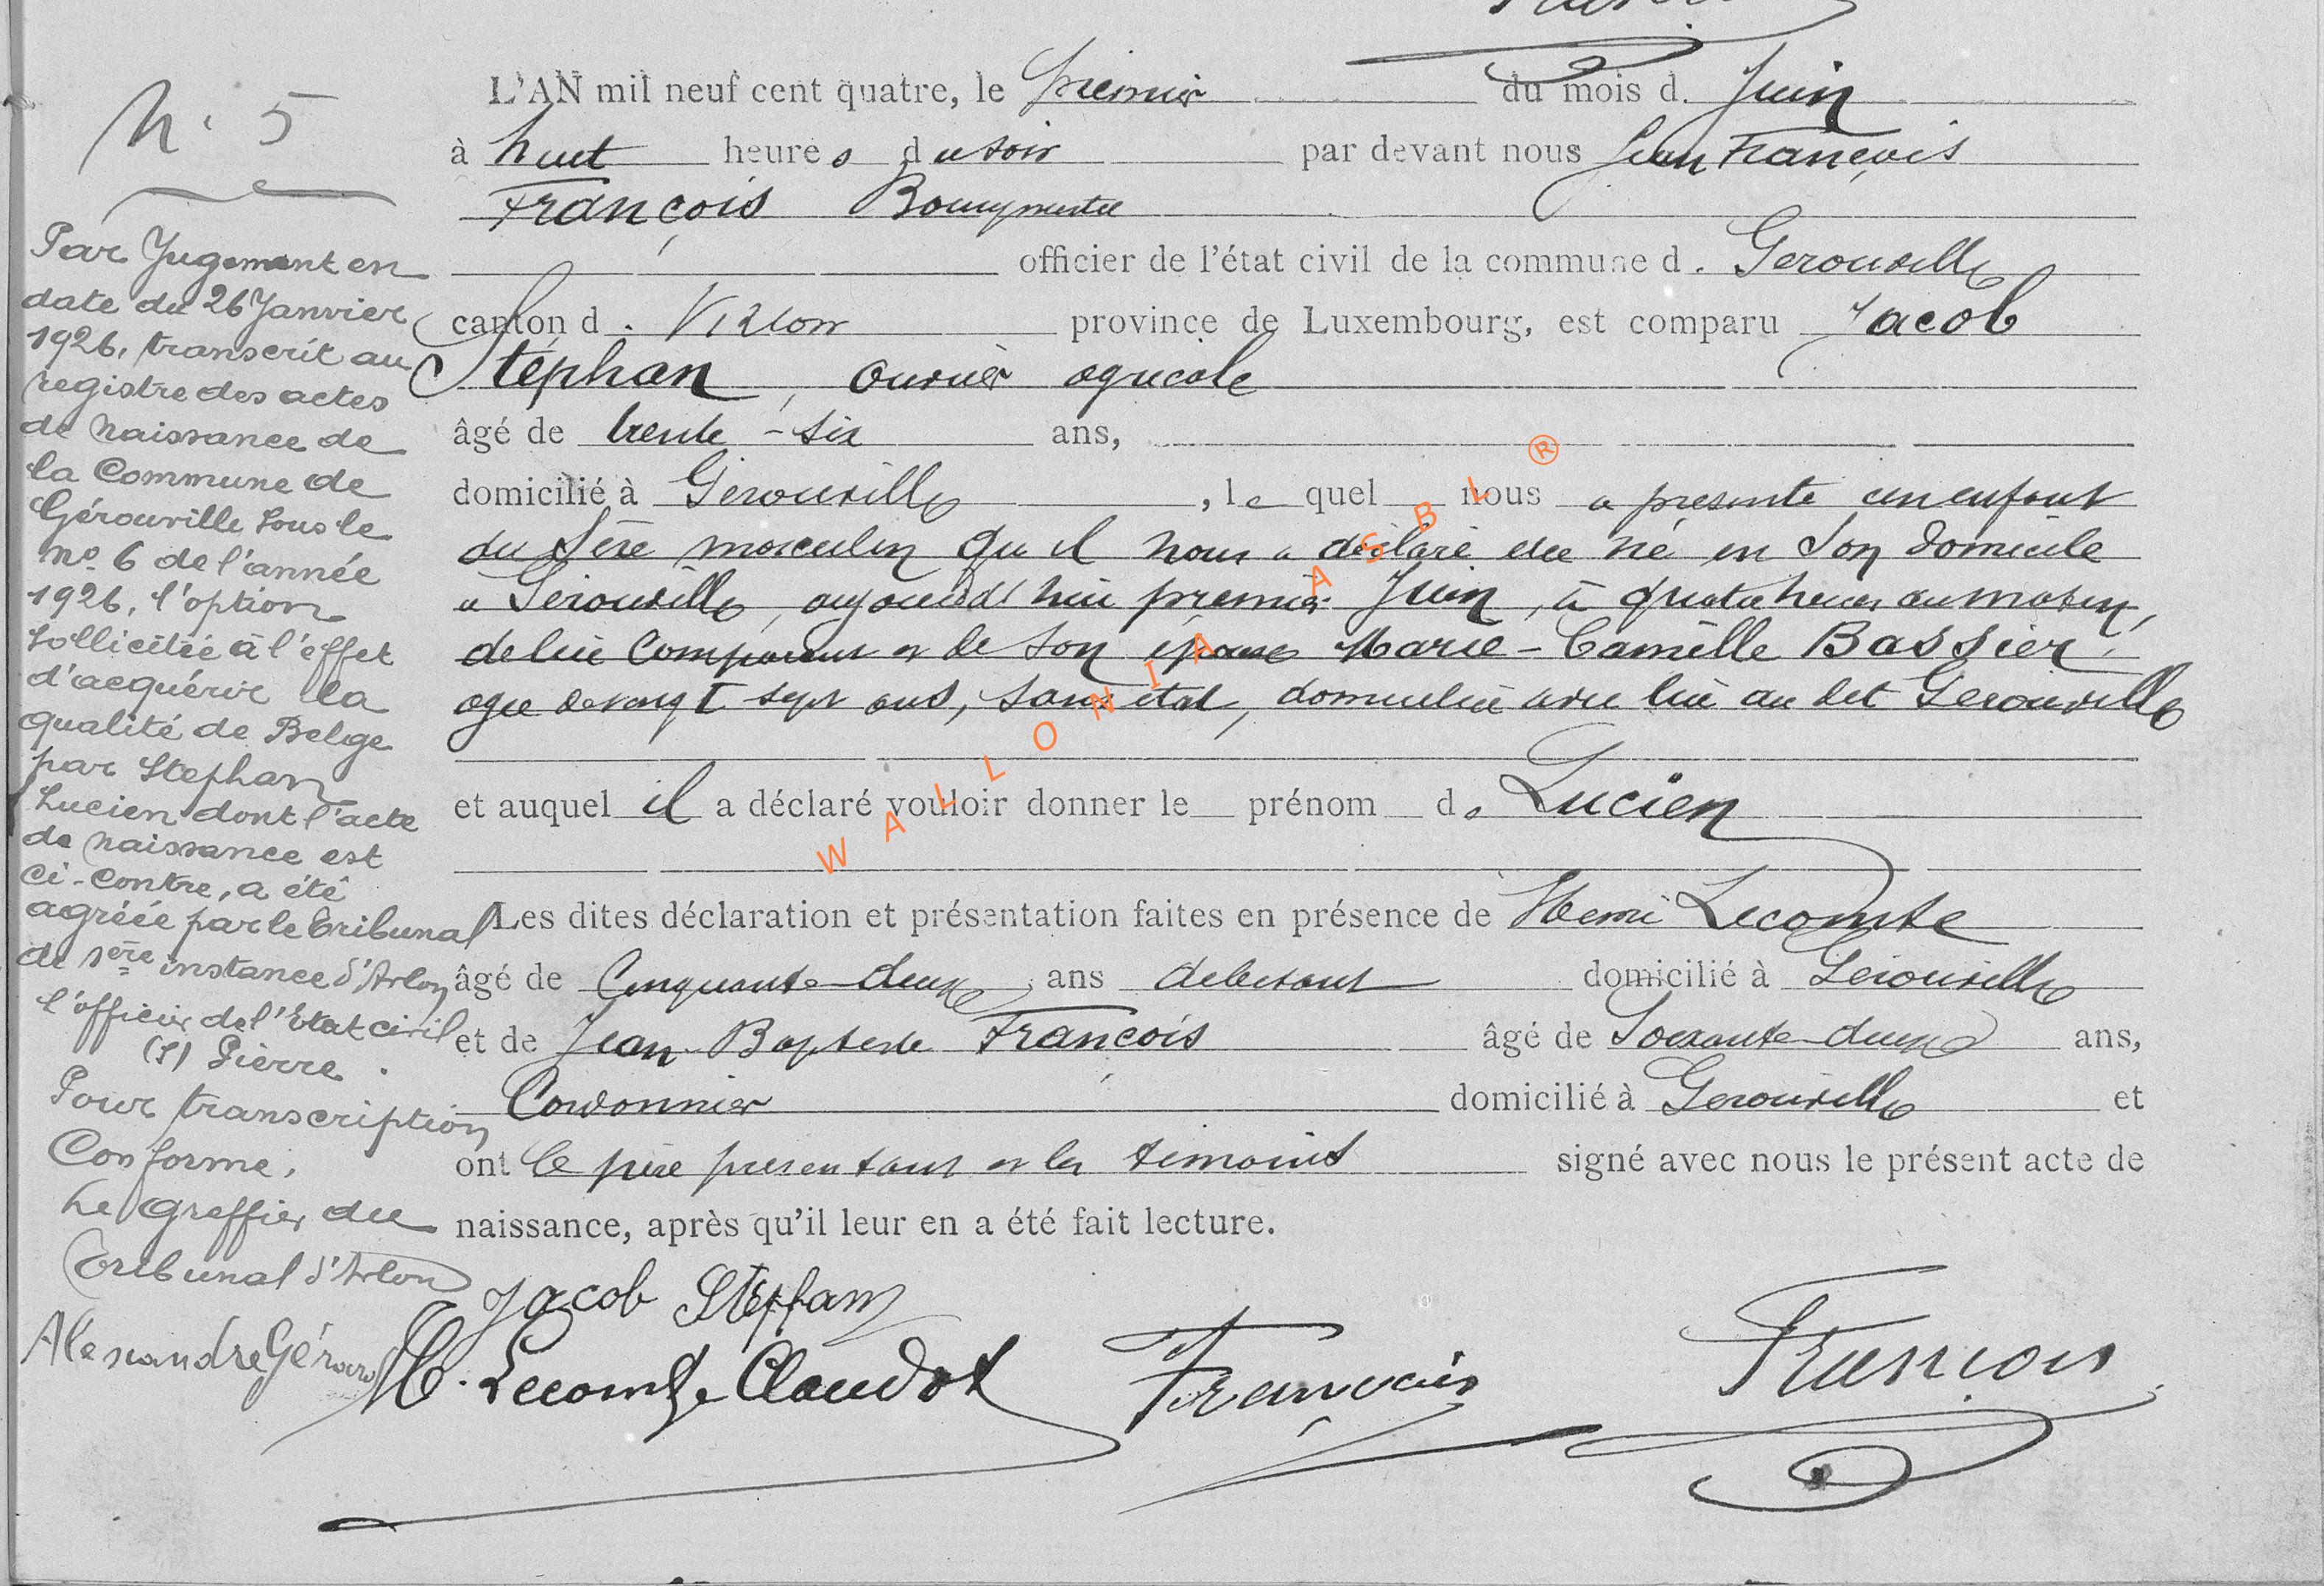 N. 5
Par Jugement en
date du 26 Janvier
1926, transcrit au
registre des actes
de Naissance de
la Commune de
Gérouville sous le
No. 6 de l'année
1926, l'option
sollicitée à l'effet
d'acquérir la
qualité de Belge
par Stephan
Lucien dont l'acte
de naissance est
ci-contre, a été
agréée par le tribunal
de 1ère instance d'Arlon
l'officier de l'Etat civil
(s) Pièrre.
Pour transcription
Conforme,
Le Greffier du
Tribunal d'Arlon
Alexandre Gérard
L'AN mil neuf cent quatre, le premier du mois d. Juin
à huit heures du soir par devant nous Jean François
François Bourgmestre
officier de l'état civil de la commune d. Gerouville
canton d. Virton province de Luxembourg, est comparu Jacob
Stéphan, ouvrier agricole
âgé de trente-six ans,
domicilié à Gerouville, le quel nous a présenté un enfant
du Sexe masculin qu'il nous a déclaré être né en son domicile
a Gerouville, aujourd'hui premier Juin, à quatre heures du matin,
de lui Comparant et de son épouse Marie-Camille Bassier,
agee de vingt sept ans, sans état, domiciliée avec lui au dit Gerouville
et auquel il a déclaré vouloir donner le prénom de Lucien
Les dites déclaration et présentation faites en présence de Henri Lecomte
âgé de Cinquante-deux ans debitant domicilié à Gerouville
et de Jean-Baptiste François âgé de Soixante-deux ans,
Cordonnier domicilié à Gerouville et
ont le père presentant et les témoins signé avec nous le présent acte de
naissance, après qu'il leur en a été fait lecture.
Jacob Steffan
H. Lecomte Claudot François François
WALLONIA ASBL ®